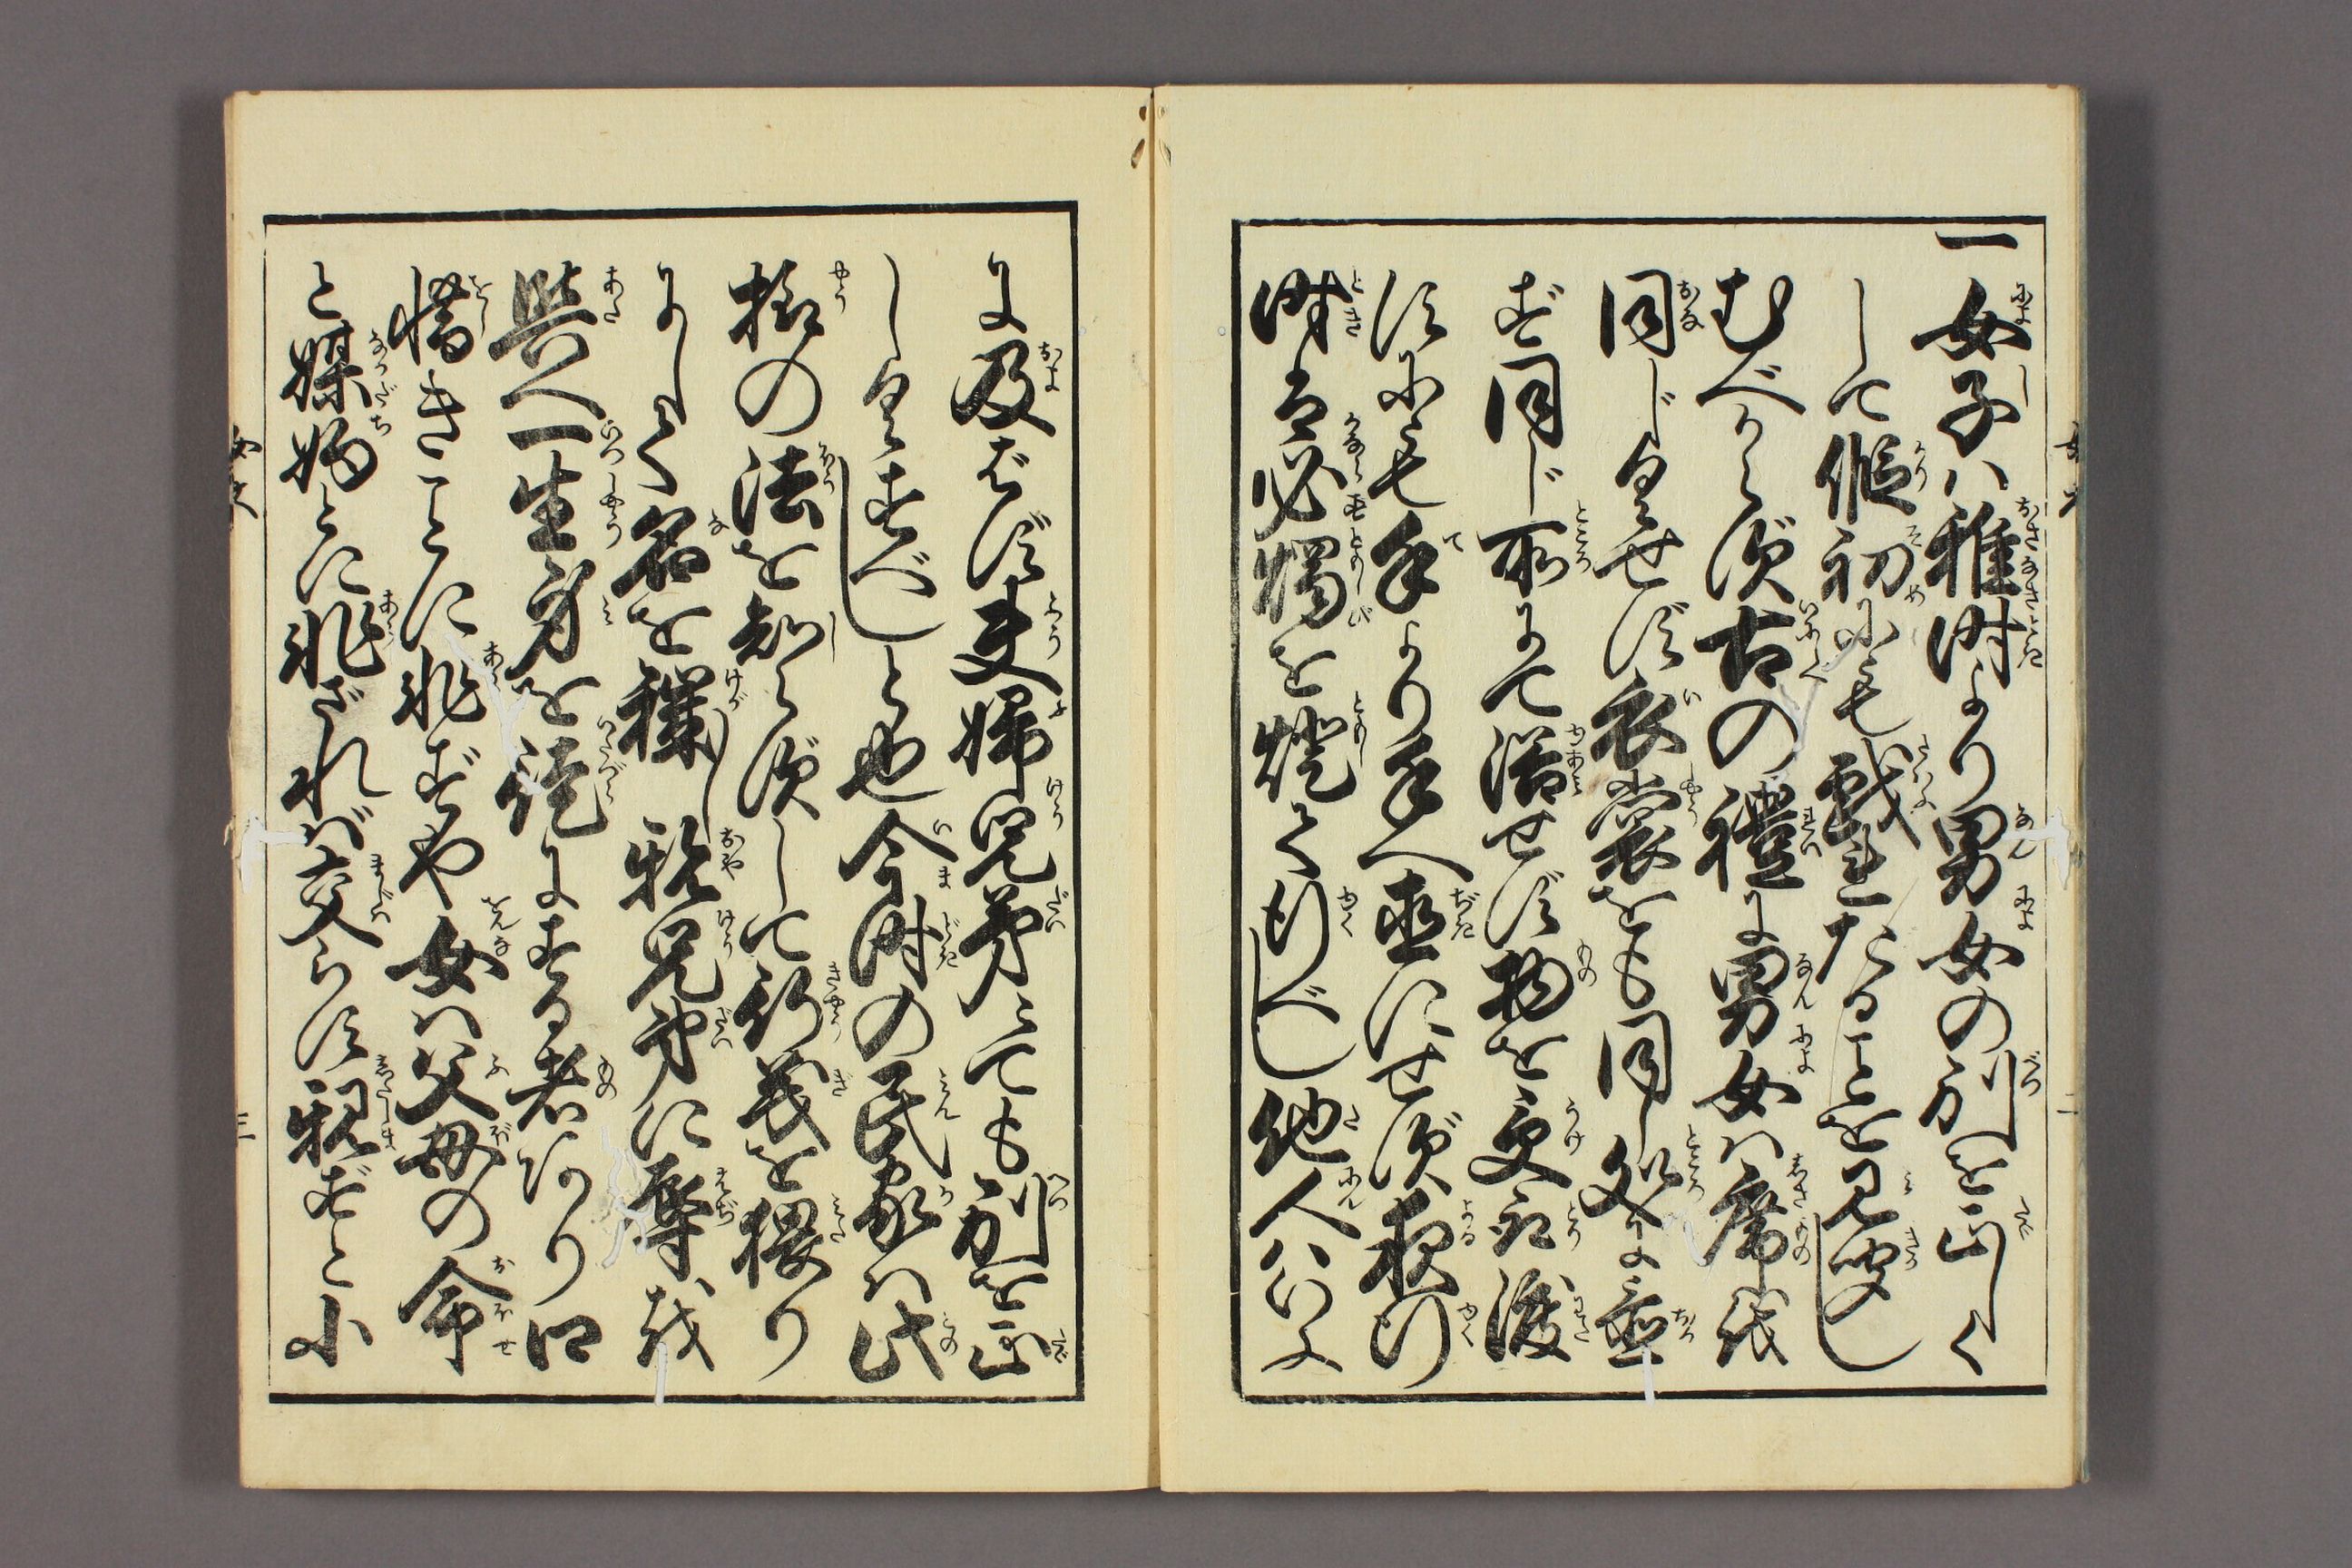 一女子ハ稚時より男女の別を正しく
して仮初にも戯れたることを見聞し
むべからず古の禮に男女ハ席を
同じくせず衣裳をも同し処に置
ず同じ所にて浴せず物を受取渡
すにも手より手へ直にせず夜行
時ハ必燭を燈て行べし他人ハいふ
に及ばず夫婦兄弟にても別を正
しくすべしと也今時の民家ハ此
様の法を知らずして行義を猥り
にして名を穢し親兄弟に辱を
與へ一生身を徒にする者あり口
惜きことに非ずや女ハ父母の命
と媒妁とに非ざれバ交らず親ずと小
女大
二
女大
三